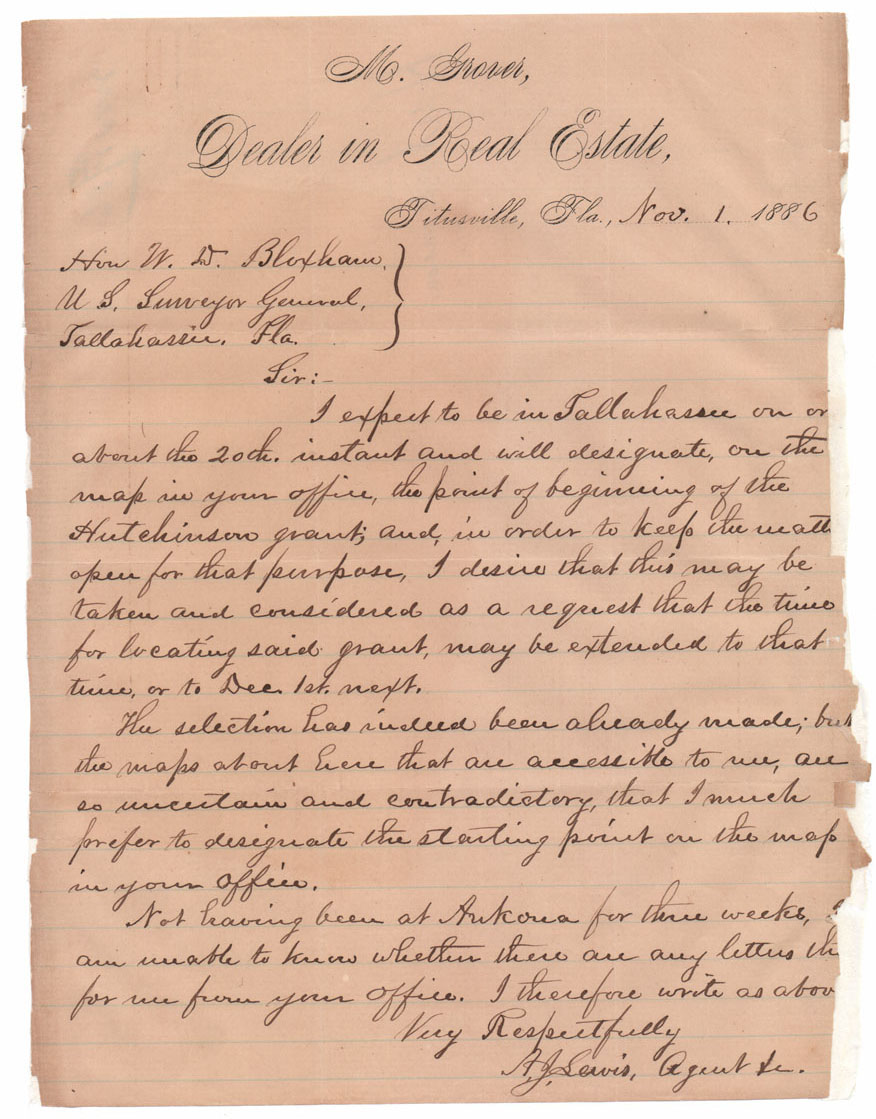 M. Grover,
Dealer in Real Estate,
Titusville, Fla., Nov. 1. 1886
Hon W. D. Bloxham,
U S. Surveyor General,
Tallahassee. Fla.
Sir:-
I expect to be in Tallahassee on or
about the 20th. instant and will designate, on the
map in your office, the point of beginning of the
Hutchinson grant; and, in order to keep the matt
open for that purpose, I desire that this may be
taken and considered as a request that the time
for locating said grant, may be extended to that
time, or to Dec. 1st. next.
The selection has indeed been already made; but
the maps about here that are accessible to me, are
so uncertain and contradictory, that I much
prefer to designate the starting point on the map
in your office.
Not having been at Ankona for three weeks, I
am unable to know whether there are any letters th
for me from your office. I therefore write as abov
Very Respectfully
A. J. Lewis, Agent &c.